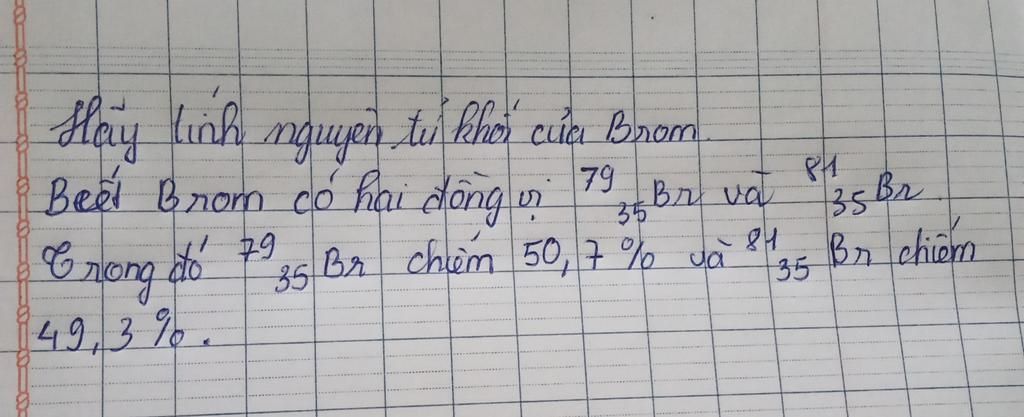 Hãy tính nguyên tử khối của Brom.
Biết Brom có hai đồng vị ⁷⁹₃₅Br và ⁸¹₃₅Br.
Trong đó ⁷⁹₃₅Br chiếm 50,7% và ⁸¹₃₅Br chiếm
49,3%.